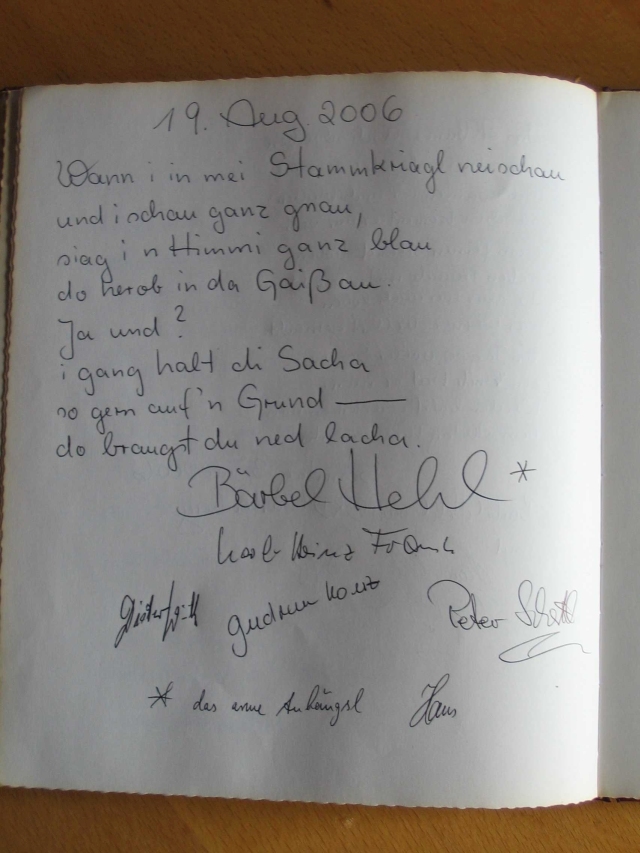 19. Aug 2006
Wann i in mei Stammkriagl neischau
und i schau ganz gnau,
siag i 'n Himmi ganz blau
do herob in da Gaißau.
Ja und?
i gang halt di Sacha
so gern auf'n Grund —
do braugst du ned lacha.
Bärbel Hehl *
Karl-Heinz
gudrun
Peter
* das arme Anhängsl Hans